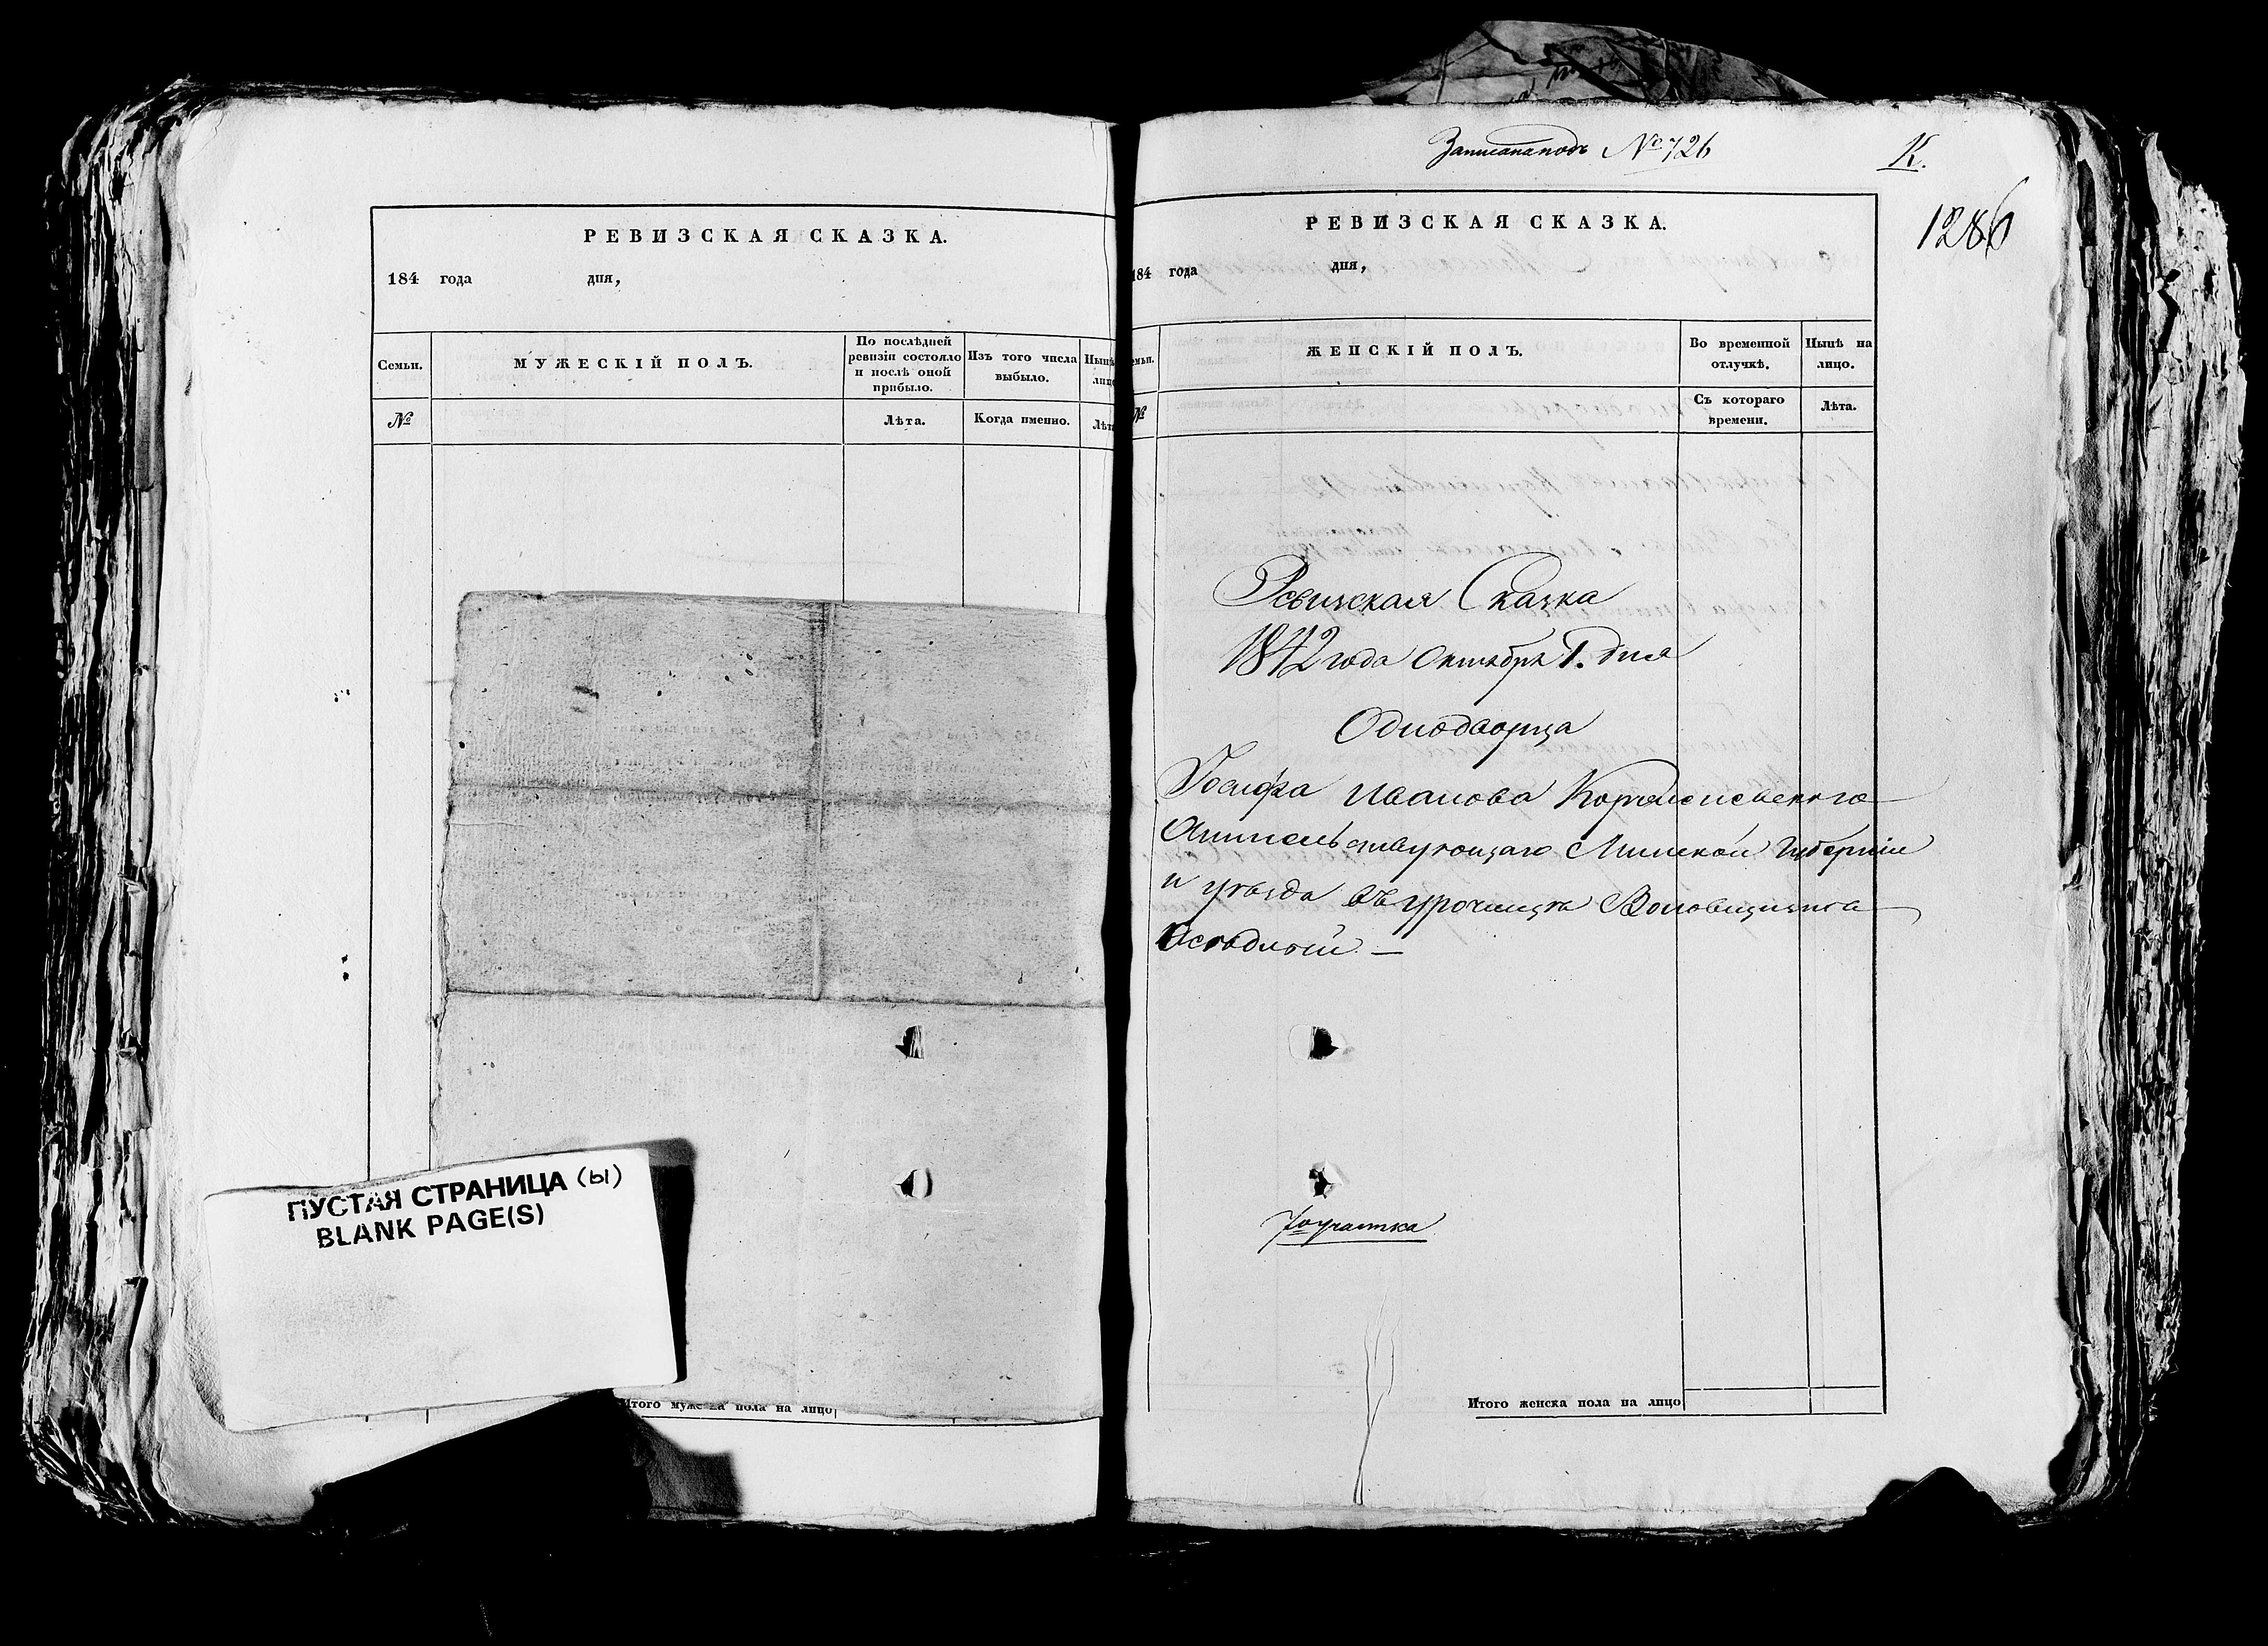 РЕВИЗСКАЯ СКАЗКА.
184 года дня,
Семьи.
МУЖЕСКІЙ ПОЛЪ.
По послѣдней ревизіи состояло и послѣ оной прибыло.
Изъ того числа выбыло.
№
Лѣта.
Когда именно.
ПУСТАЯ СТРАНИЦА (ы)
BLANK PAGE(S)
Итого мужеска пола на лицо
Записана подъ № 726
К.
1286
РЕВИЗСКАЯ СКАЗКА.
184 года дня,
ЖЕНСКІЙ ПОЛЪ.
Во временной отлучкѣ.
Нынѣ на лицо.
№
Съ котораго времени.
Лѣта.
Ревизская Сказка
1842 года Октября 1. дня
Однодворца
Іосифа Иванова
Жительствующаго Минской Губерніи
и уѣзда въ урочищѣ
Осѣдлой —
7го участка
Итого женска пола на лицо